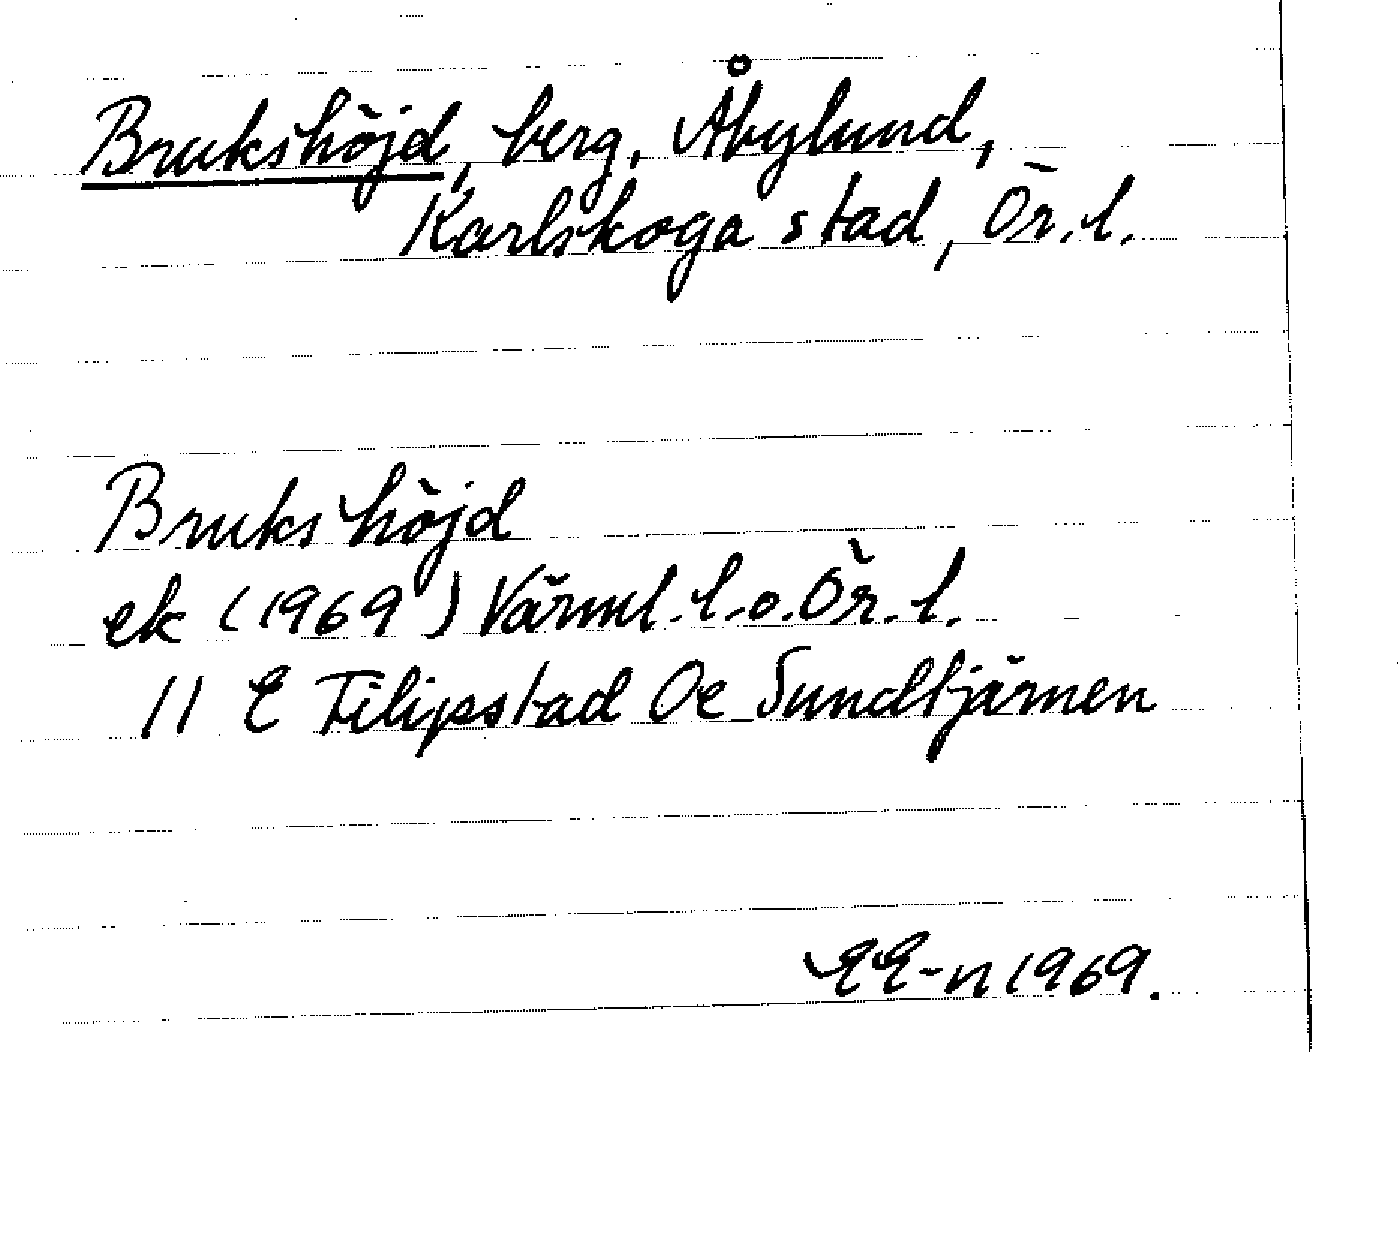 Brukshöjd, berg, Åbylund,
Karlskoga stad, Ör. l.
Brukshöjd
ek (1969) Värml. l. o. Ör. l.
11 E Filipstad Oe Sundtjärnen
EE-n 1969.